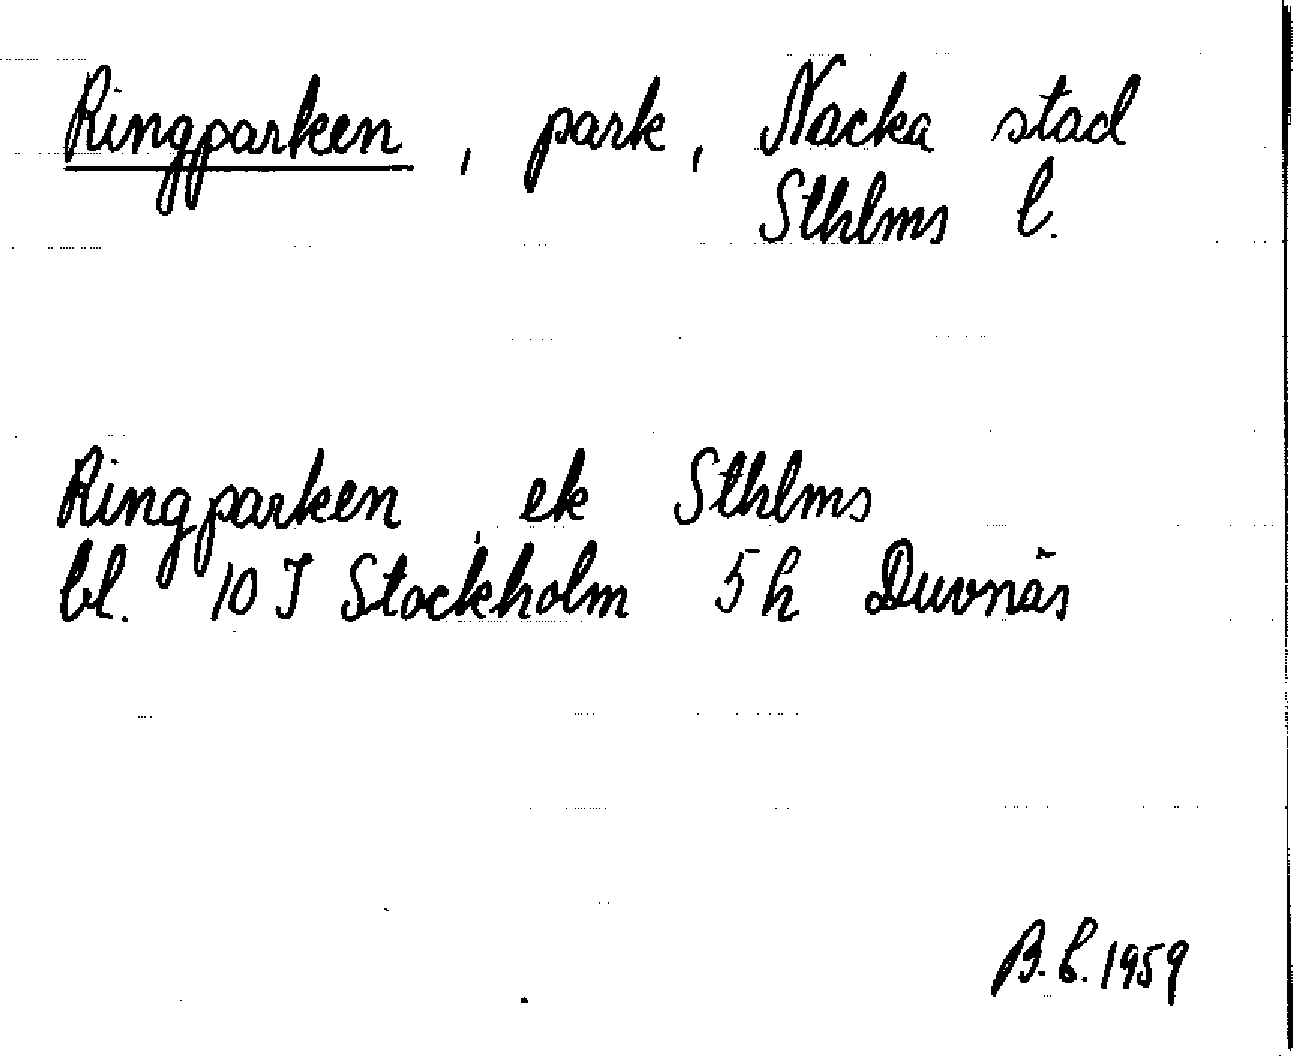 Ringparken, park, Nacka stad
Sthlms l.
Ringparken, ek Sthlms
bl. 10 J Stockholm 5 h Duvnäs
B.L. 1959